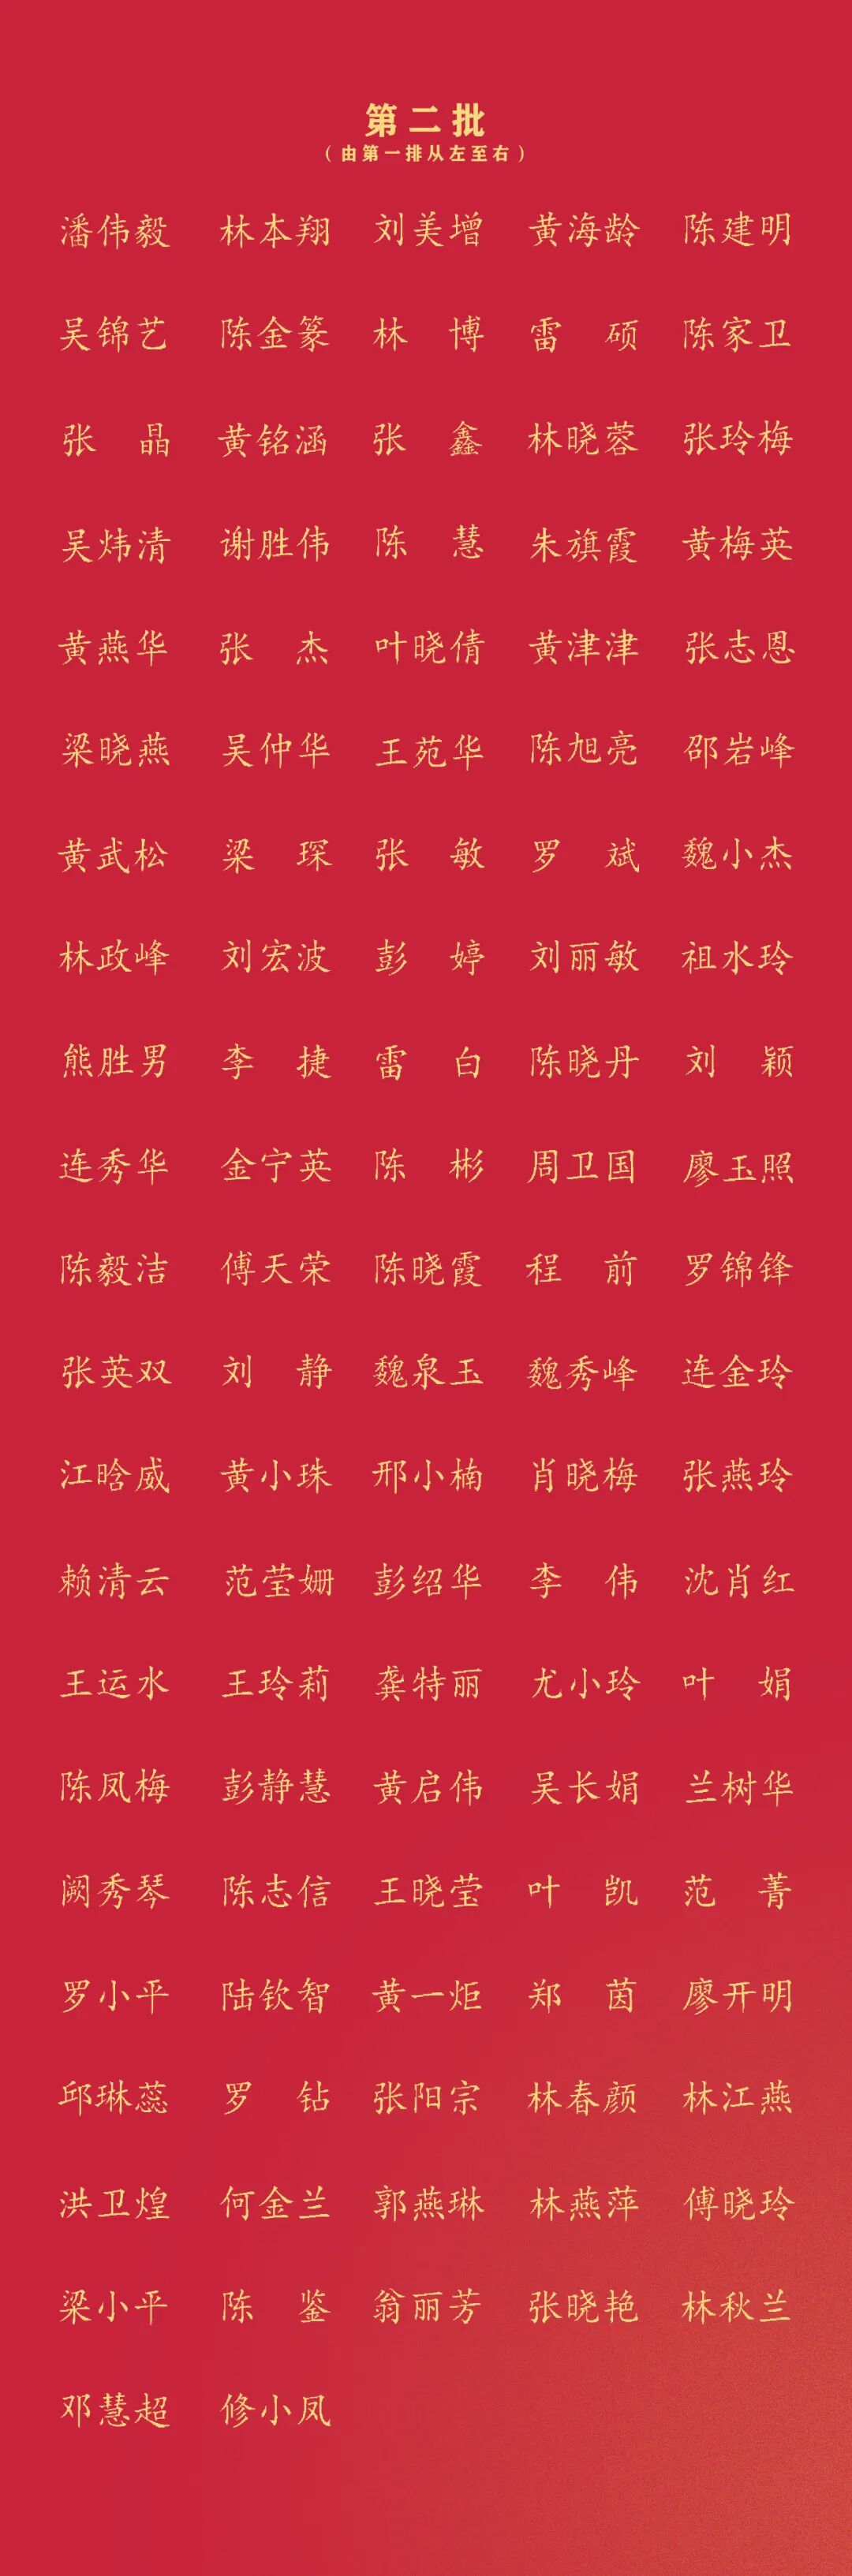 第二批
（由第一排从左至右）
潘伟毅 林本翔 刘美增 黄海龄 陈建明
吴锦艺 陈金篆 林 博 雷 硕 陈家卫
张 晶 黄铭涵 张 鑫 林晓蓉 张玲梅
吴炜清 谢胜伟 陈 慧 朱旗霞 黄梅英
黄燕华 张 杰 叶晓倩 黄津津 张志恩
梁晓燕 吴仲华 王苑华 陈旭亮 邵岩峰
黄武松 梁 琛 张 敏 罗 斌 魏小杰
林政峰 刘宏波 彭 婷 刘丽敏 祖水玲
熊胜男 李 捷 雷 白 陈晓丹 刘 颖
连秀华 金宁英 陈 彬 周卫国 廖玉照
陈毅洁 傅天荣 陈晓霞 程 前 罗锦锋
张英双 刘 静 魏泉玉 魏秀峰 连金玲
江晗威 黄小珠 邢小楠 肖晓梅 张燕玲
赖清云 范莹姗 彭绍华 李 伟 沈肖红
王运水 王玲莉 龚特丽 尤小玲 叶 娟
陈凤梅 彭静慧 黄启伟 吴长娟 兰树华
阙秀琴 陈志信 王晓莹 叶 凯 范 菁
罗小平 陆钦智 黄一炬 郑 茵 廖开明
邱琳蕊 罗 钻 张阳宗 林春颜 林江燕
洪卫煌 何金兰 郭燕琳 林燕萍 傅晓玲
梁小平 陈 鉴 翁丽芳 张晓艳 林秋兰
邓慧超 修小凤